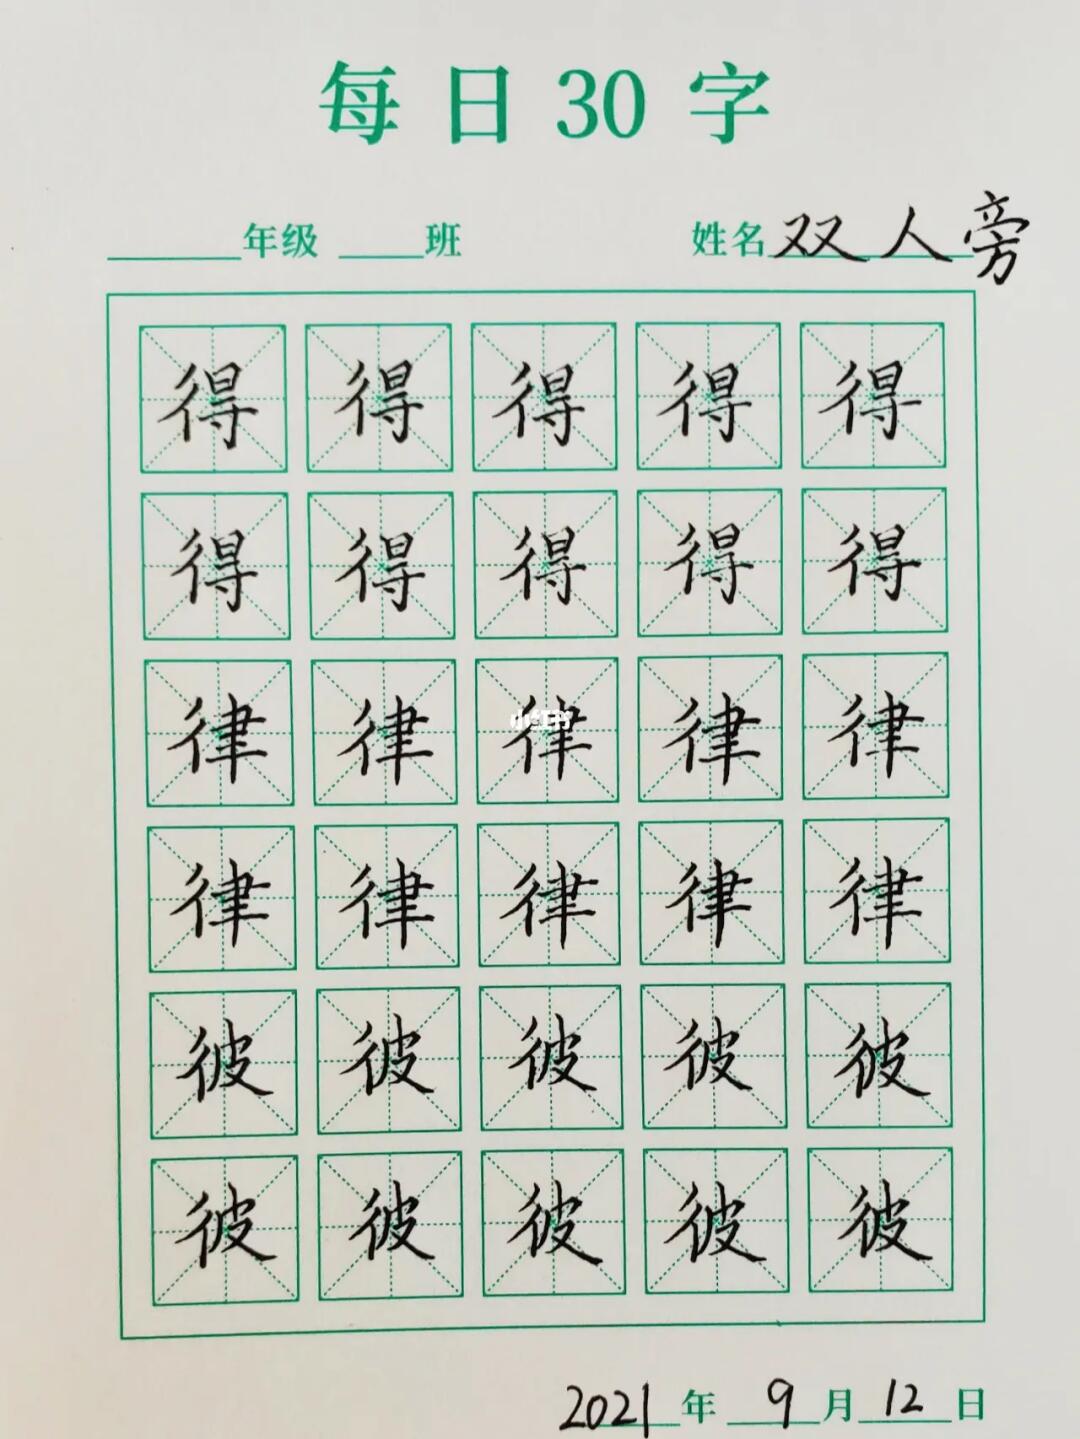 每日30字
年级 班 姓名 双人旁
得 得 得 得 得
得 得 得 得 得
律 律 律 律 律
小红书
律 律 律 律 律
彼 彼 彼 彼 彼
彼 彼 彼 彼 彼
2021 年 9 月 12 日